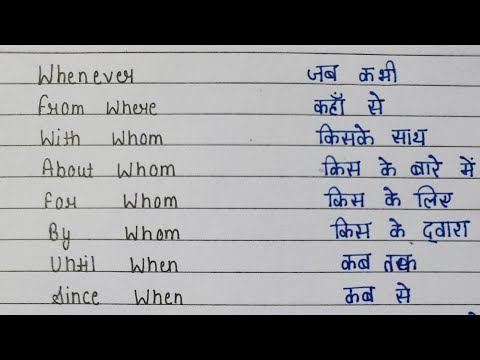 Whenever जब कभी
From Where कहाँ से
With Whom किसके साथ
About Whom किस के बारे में
For Whom किस के लिए
By Whom किस के द्वारा
Until When कब तक
Since When कब से